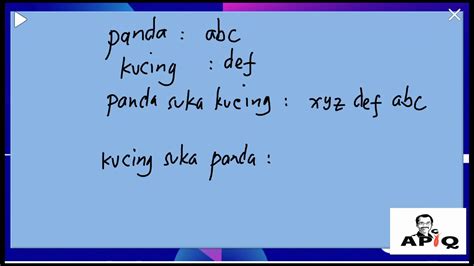 panda : abc
kucing : def
panda suka kucing : xyz def abc
kucing suka panda :
APIQ